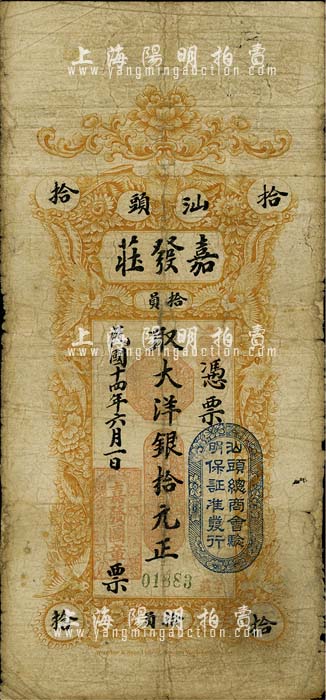 上海陽明拍賣
www.yangmingauction.com
拾 汕頭 拾
嘉發莊
拾員
上海陽明拍賣
www.yangmingauction.com
憑票
取大洋銀拾元正
民國十四年六月一日
票
汕頭總商會驗
明保証准發行
01883
拾 拾
上海陽明拍賣
www.yangmingauction.com